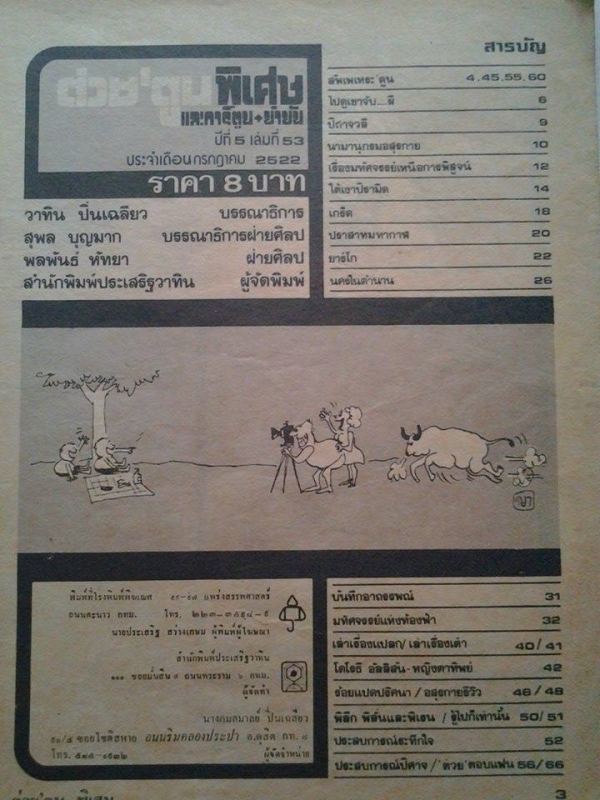 สารบัญ
ต่วย'ตูนพิเศษ
และการ์ตูน+ขายขัน
ปีที่ 5 เล่มที่ 53
ประจำเดือนกรกฎาคม 2522
ราคา 8 บาท
วาทิน ปิ่นเฉลียว บรรณาธิการ
สุพล บุญมาก บรรณาธิการฝ่ายศิลป
พลพันธ์ หัทยา ฝ่ายศิลป
สำนักพิมพ์ประเสริฐวาทิน ผู้จัดพิมพ์
สัพเพเหระ'ตูน 4,45,55,60
ไปดูเขาจับ....ผี 6
ปิถาจวลี 9
นามานุกรมอสุรกาย 10
เรื่องมหัศจรรย์เหนือการพิสูจน์ 12
ใต้เงาปิรามิด 14
เกร็ด 18
ปราสาทมหากาฬ 20
ยาร์โก 22
นครในตำนาน 26
ญา
พิมพ์ที่โรงพิมพ์พิฆเณศ ๙๐-๙๗ แพร่งสรรพศาสตร์
ถนนตะนาว กทม. โทร.
นายประเสริฐ สว่างเกษม ผู้พิมพ์ผู้โฆษณา
สำนักพิมพ์ประเสริฐวาทิน
ถนนพระราม ๖ กทม.
ผู้จัดทำ
นางกมลมาลย์ ปิ่นเฉลียว
ซอยโชติสหาย ถนนริมคลองประปา อ.ดุสิต กท. ๘
โทร. ผู้จัดจำหน่าย
บันทึกอาถรรพณ์ 31
มหัศจรรย์แห่งท้องฟ้า 32
เล่าเรื่องแปลก/เล่าเรื่องเต๋า 40/41
โดโรธี อัลลิสัน-หญิงตาทิพย์ 42
ร้อยแปดปริศนา / อสุรกายรีวิว 46/48
พิลึก พิลั่นและพิเรน / รู้ไปก็เท่านั้น 50/51
ประสบการณ์ระทึกใจ 52
ประสบการณ์ปีศาจ / 'ต่วย' ตอบแฟน 56/66
3
ต่วย'ตูน พิเศษ